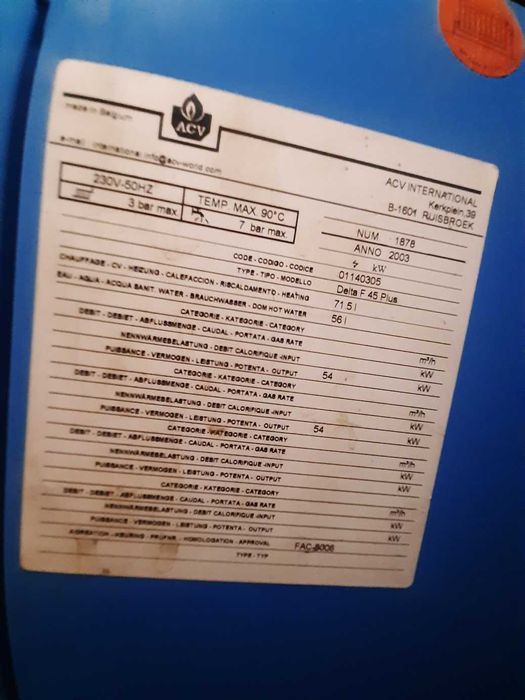 made in Belgium
ACV
e-mail: international.info@acv-world.com
ACV INTERNATIONAL
Kerkplein, 39
B-1601 RUISBROEK
230V-50HZ
3 bar max.
TEMP. MAX 90°C
7 bar max.
NUM 1878
ANNO 2003
kW
CODE - CODIGO - CODICE 01140305
TYPE - TIPO - MODELLO Delta F 45 Plus
CHAUFFAGE - CV - HEIZUNG - CALEFACCION - RISCALDAMENTO - HEATING 71.5 l
EAU - AQUA - ACQUA SANIT. WATER - BRAUCHWASSER - DOM HOT WATER 56 l
CATEGORIE - KATEGORIE - CATEGORY
DEBIT - DEBIET - ABFLUSSMENGE - CAUDAL - PORTATA - GAS RATE m³/h
NENNWÄRMEBELASTUNG - DEBIT CALORIFIQUE -INPUT 54 kW
PUISSANCE - VERMOGEN - LEISTUNG - POTENTA - OUTPUT kW
CATEGORIE - KATEGORIE - CATEGORY
DEBIT - DEBIET - ABFLUSSMENGE - CAUDAL - PORTATA - GAS RATE m³/h
NENNWÄRMEBELASTUNG - DEBIT CALORIFIQUE -INPUT 54 kW
PUISSANCE - VERMOGEN - LEISTUNG - POTENTA - OUTPUT kW
CATEGORIE - KATEGORIE - CATEGORY
DEBIT - DEBIET - ABFLUSSMENGE - CAUDAL - PORTATA - GAS RATE m³/h
NENNWÄRMEBELASTUNG - DEBIT CALORIFIQUE -INPUT kW
PUISSANCE - VERMOGEN - LEISTUNG - POTENTA - OUTPUT kW
CATEGORIE - KATEGORIE - CATEGORY
DEBIT - DEBIET - ABFLUSSMENGE - CAUDAL - PORTATA - GAS RATE m³/h
NENNWÄRMEBELASTUNG - DEBIT CALORIFIQUE -INPUT kW
PUISSANCE - VERMOGEN - LEISTUNG - POTENTA - OUTPUT kW
AGREATION - KEURING - PRÜFNR. - HOMOLOGATION - APPROVAL FAC-B006
TYPE - TYP